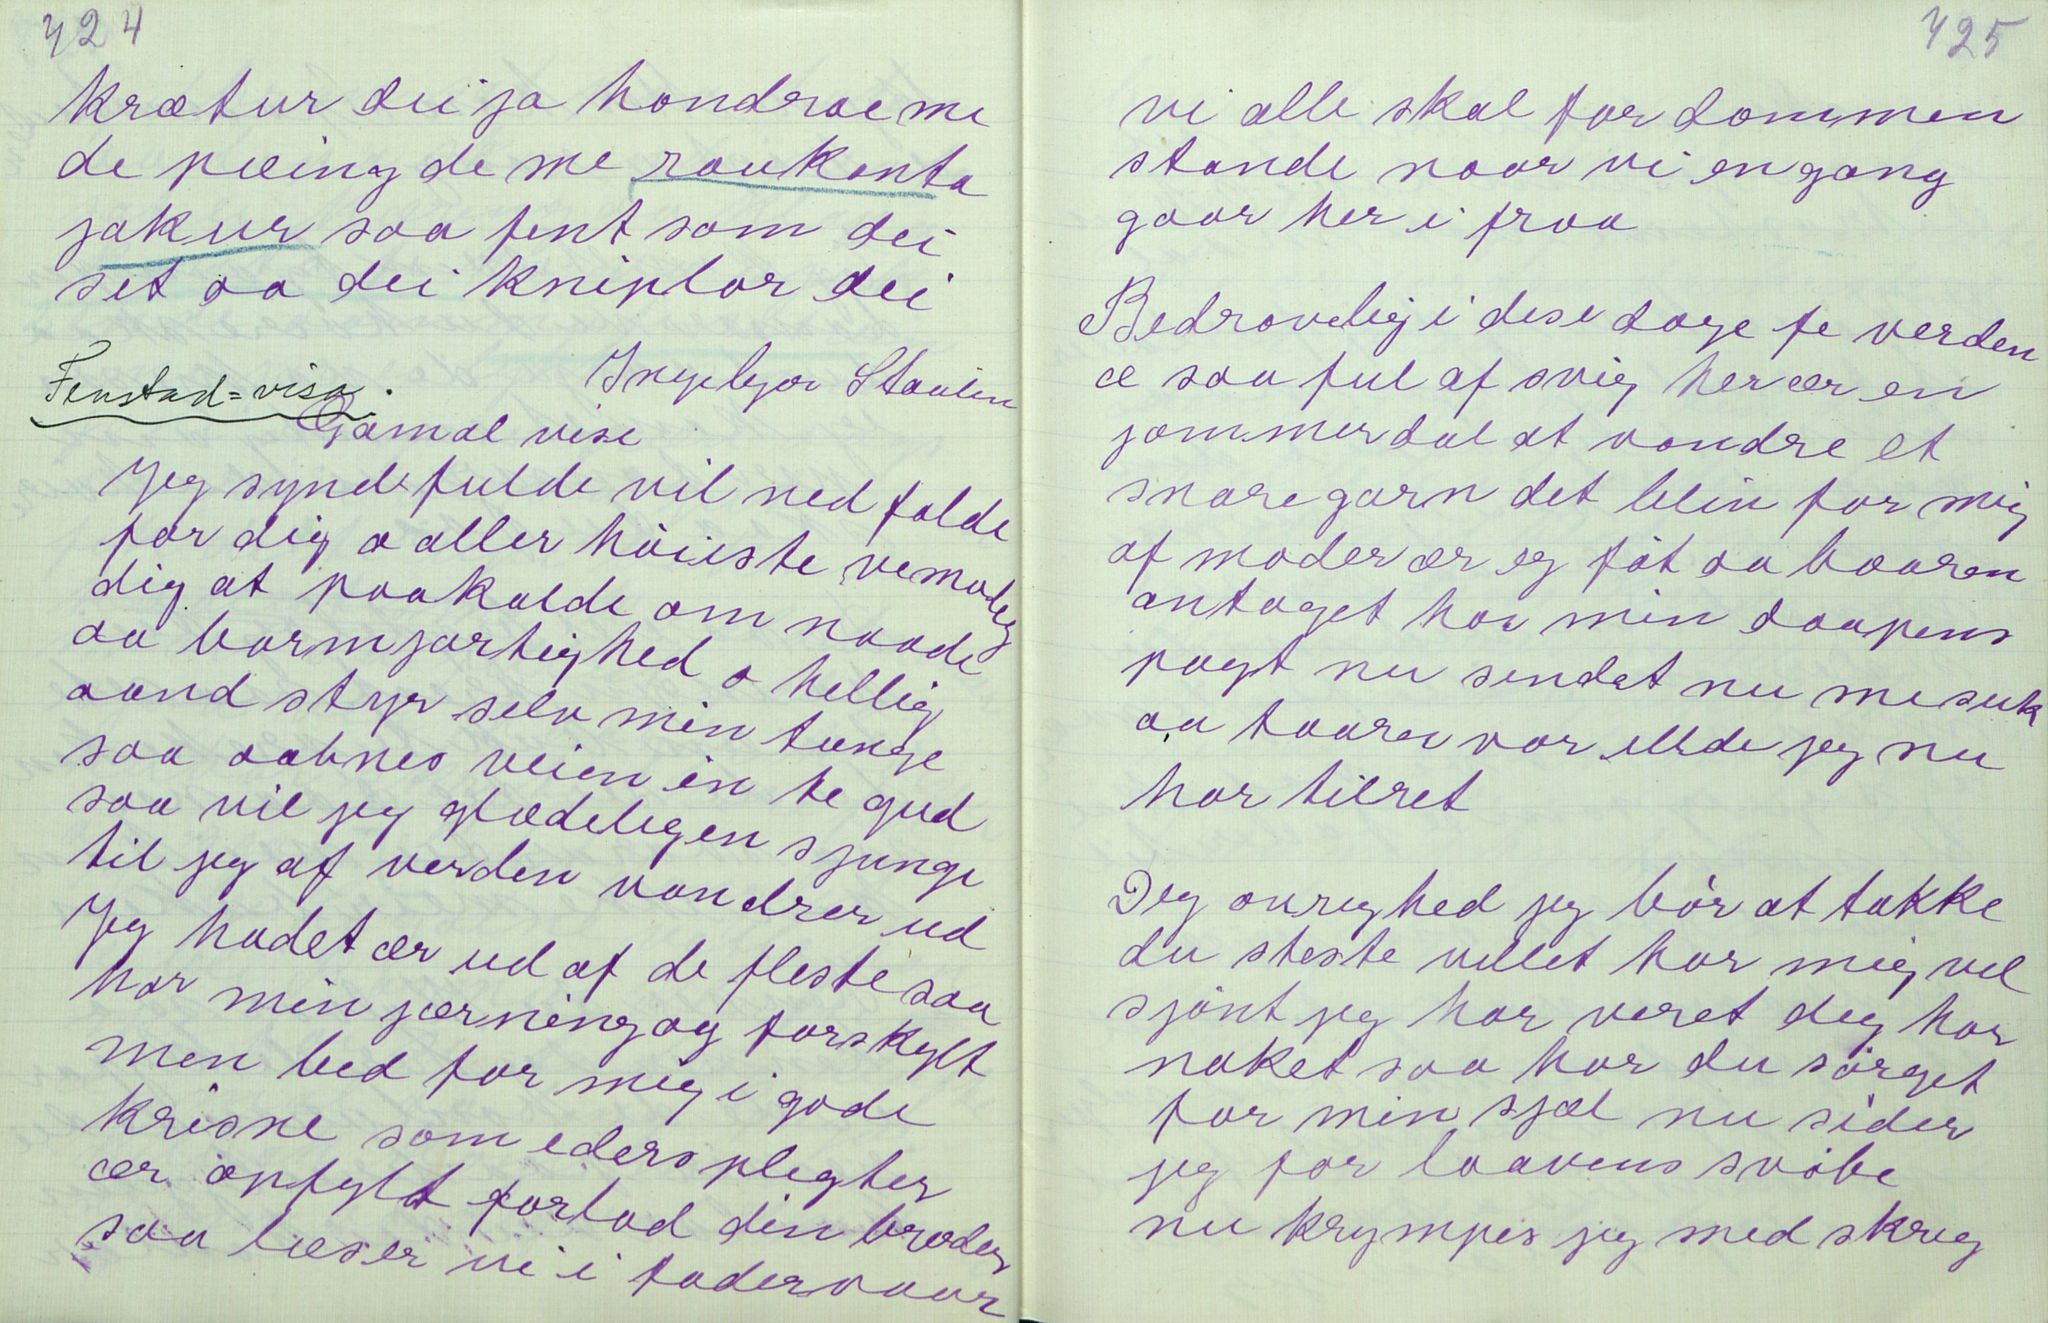 424
krætur dei ja hondrae me
de pæing de me raukanta
jakur saa fent som dei
set aa dei kniplar dei
Ingebgør Staulen
Fenstad=visa.
Gamal vise
Jeg syndefulde vil ned falde
for dig o aller høieste vemodig
dig at paakalde om naade
aa barmjartighed o hellig
aand styr selv min tunge
saa aabnes veien in te gud
saa vil jeg glædeligen sjunge
til jeg af verden vandrer ud
Jeg hadet ær ud af de fleste saa
har min jærning og forskylt
men bed for mig i gode
krisne som eders plegter
ær opfylt forlad din broder
saa læser vi i fadervaar
425
vi alle skal for dommen
stande naar vi engang
gaar her i fraa
Bedrøvelig i dese dage fe verden
æ saa ful af svig her ær en
jammerdal at vandre et
snaregarn det blin for mig
af moder ær eg føt aa baaren
antaget har min daapens
pagt nu sendat nu me suk
aa taarer var ellde jeg nu
har tilret
Deg øvreghed jeg bør at takke
du steste vellet har mig vel
sjønt jeg har veret deg har
naket saa har du sørget
for min sjæl nu sider
jeg for laavens svøbe
nu krympes jeg med skreg